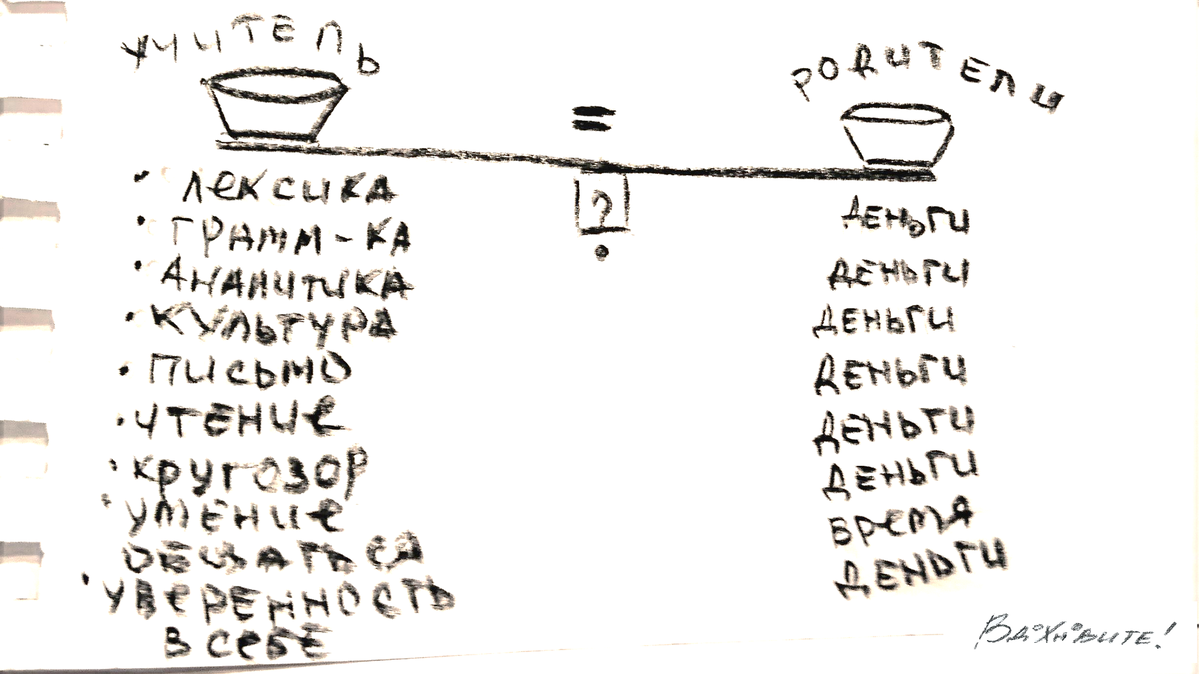 УЧИТЕЛЬ
РОДИТЕЛИ
=
?
• ЛЕКСИКА
• ГРАММ-КА
• АНАЛИТИКА
• КУЛЬТУРА
• ПИСЬМО
• ЧТЕНИЕ
• КРУГОЗОР
• УМЕНИЕ
ОБЩАТЬСЯ
• УВЕРЕННОСТЬ
В СЕБЕ
ДЕНЬГИ
ДЕНЬГИ
ДЕНЬГИ
ДЕНЬГИ
ДЕНЬГИ
ДЕНЬГИ
ВРЕМЯ
ДЕНЬГИ